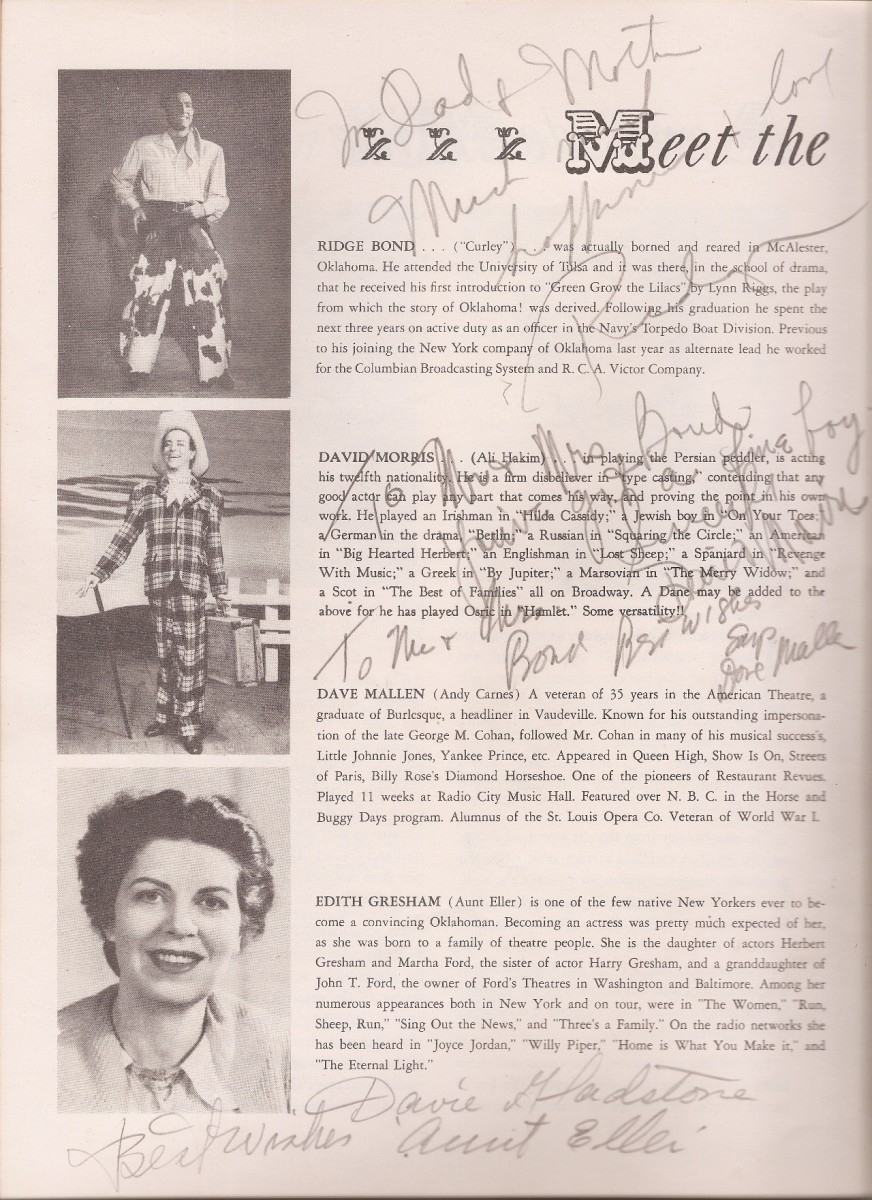 To Dad & Mother
Much happiness & love
. . . Meet the
RIDGE BOND . . . ("Curley") . . . was actually borned and reared in McAlester,
Oklahoma. He attended the University of Tulsa and it was there, in the school of drama,
that he received his first introduction to "Green Grow the Lilacs" by Lynn Riggs, the play
from which the story of Oklahoma! was derived. Following his graduation he spent the
next three years on active duty as an officer in the Navy's Torpedo Boat Division. Previous
to his joining the New York company of Oklahoma last year as alternate lead he worked
for the Columbian Broadcasting System and R. C. A. Victor Company.
To Mr & Mrs Bond
fine boy
DAVID MORRIS . . . (Ali Hakim) . . . in playing the Persian peddler, is acting
his twelfth nationality. He is a firm disbeliever in "type casting," contending that any
good actor can play any part that comes his way, and proving the point in his own
work. He played an Irishman in "Hilda Cassidy;" a Jewish boy in "On Your Toes;"
a German in the drama, "Berlin;" a Russian in "Squaring the Circle;" an American
in "Big Hearted Herbert;" an Englishman in "Lost Sheep;" a Spaniard in "Revenge
With Music;" a Greek in "By Jupiter;" a Marsovian in "The Merry Widow;" and
a Scot in "The Best of Families" all on Broadway. A Dane may be added to the
above for he has played Osric in "Hamlet." Some versatility!!
To Mr & Mrs Bond Best Wishes
Dave Mallen
DAVE MALLEN (Andy Carnes) A veteran of 35 years in the American Theatre, a
graduate of Burlesque, a headliner in Vaudeville. Known for his outstanding impersona-
tion of the late George M. Cohan, followed Mr. Cohan in many of his musical success's,
Little Johnnie Jones, Yankee Prince, etc. Appeared in Queen High, Show Is On, Streets
of Paris, Billy Rose's Diamond Horseshoe. One of the pioneers of Restaurant Revues.
Played 11 weeks at Radio City Music Hall. Featured over N. B. C. in the Horse and
Buggy Days program. Alumnus of the St. Louis Opera Co. Veteran of World War I.
EDITH GRESHAM (Aunt Eller) is one of the few native New Yorkers ever to be-
come a convincing Oklahoman. Becoming an actress was pretty much expected of her,
as she was born to a family of theatre people. She is the daughter of actors Herbert
Gresham and Martha Ford, the sister of actor Harry Gresham, and a granddaughter of
John T. Ford, the owner of Ford's Theatres in Washington and Baltimore. Among her
numerous appearances both in New York and on tour, were in "The Women," "Run,
Sheep, Run," "Sing Out the News," and "Three's a Family." On the radio networks she
has been heard in "Joyce Jordan," "Willy Piper," "Home is What You Make it," and
"The Eternal Light."
Best Wishes Davie Gladstone
"Aunt Eller